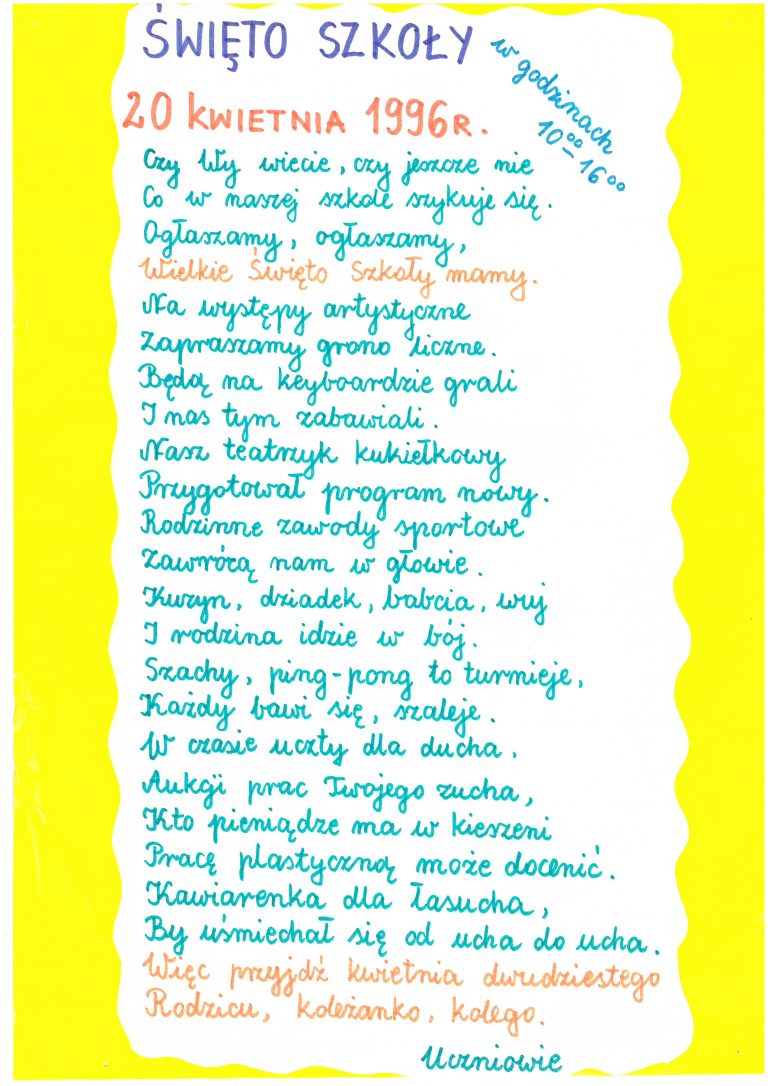 ŚWIĘTO SZKOŁY
w godzinach
10⁰⁰ – 16⁰⁰
20 KWIETNIA 1996R.
Czy Wy wiecie, czy jeszcze nie
Co w naszej szkole szykuje się.
Ogłaszamy, ogłaszamy,
Wielkie Święto Szkoły mamy.
Na występy artystyczne
Zapraszamy grono liczne.
Będą na keyboardzie grali
I nas tym zabawiali.
Nasz teatrzyk kukiełkowy
Przygotował program nowy.
Rodzinne zawody sportowe
Zawrócą nam w głowie.
Kuzyn, dziadek, babcia, wuj
I rodzina idzie w bój.
Szachy, ping-pong to turnieje,
Każdy bawi się, szaleje.
W czasie uczty dla ducha,
Aukcji prac Twojego zucha,
Kto pieniądze ma w kieszeni
Pracę plastyczną może docenić.
Kawiarenka dla łasucha,
By uśmiechał się od ucha do ucha.
Więc przyjdź kwietnia dwudziestego
Rodzicu, koleżanko, kolego.
Uczniowie